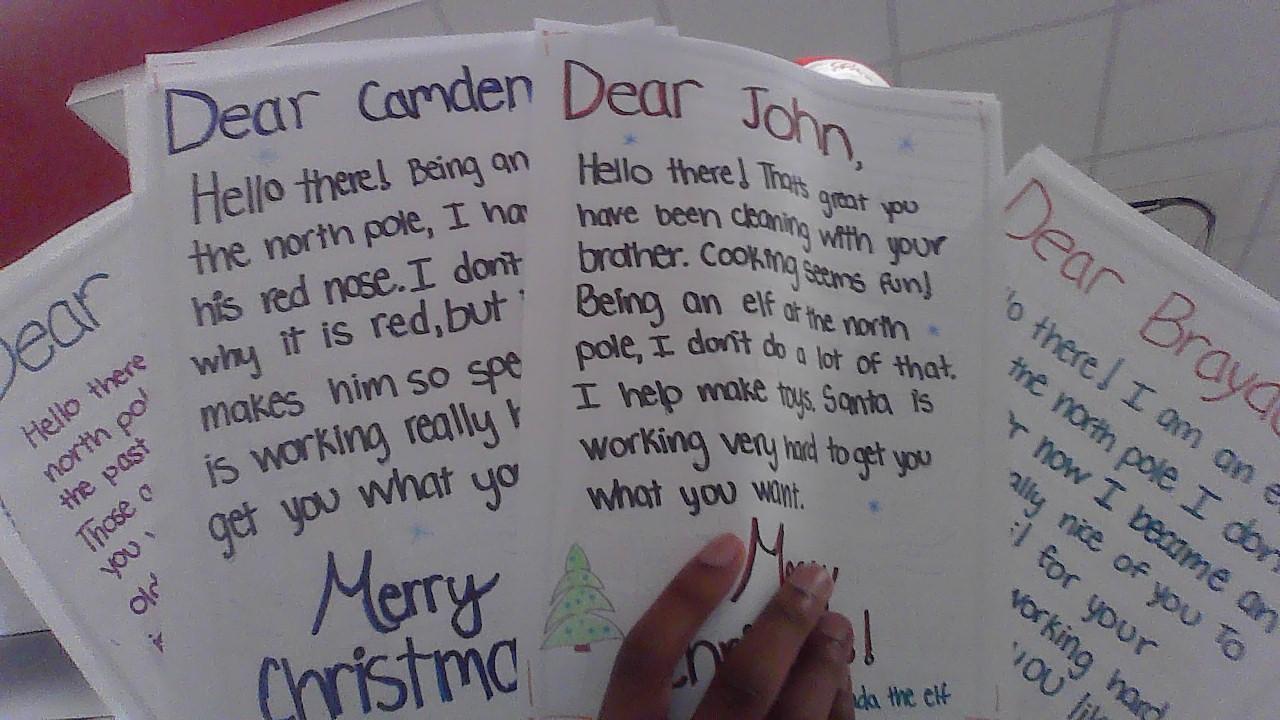 Dear
Hello there
north pol
the past
Those
you,
Dear Camden
Hello there! Being an
the north pole, I ha
his red nose. I don't
why it is red, but
makes him so spe
is working really h
get you what yo
Merry
Christma
Dear John,
Hello there! Thats great you
have been cleaning with your
brother. Cooking seems fun!
Being an elf at the north
pole, I don't do a lot of that.
I help make toys. Santa is
working very hard to get you
what you want.
Merry
da the elf
Dear Brayd
o there! I am an e
the north pole I don
r now I became an
ally nice of you To
il for your
working hard
you lik